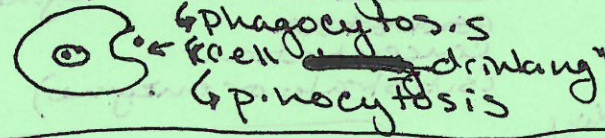 ↳phagocytosis
"cell drinking"
↳pinocytosis